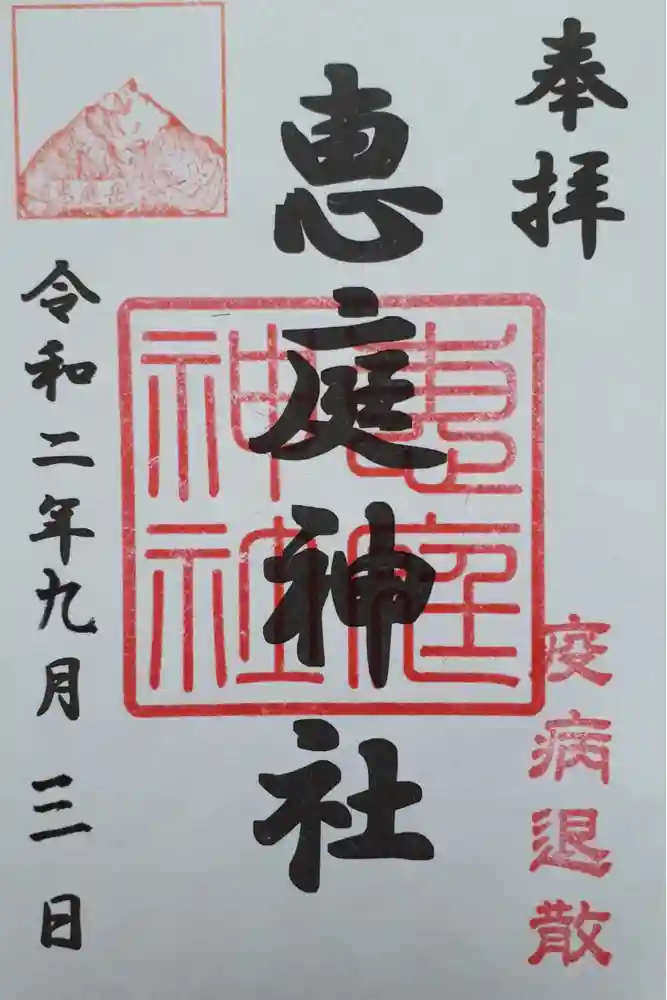 奉拝
疫病退散
恵庭神社
恵庭神社
令和二年九月三日
恵庭岳